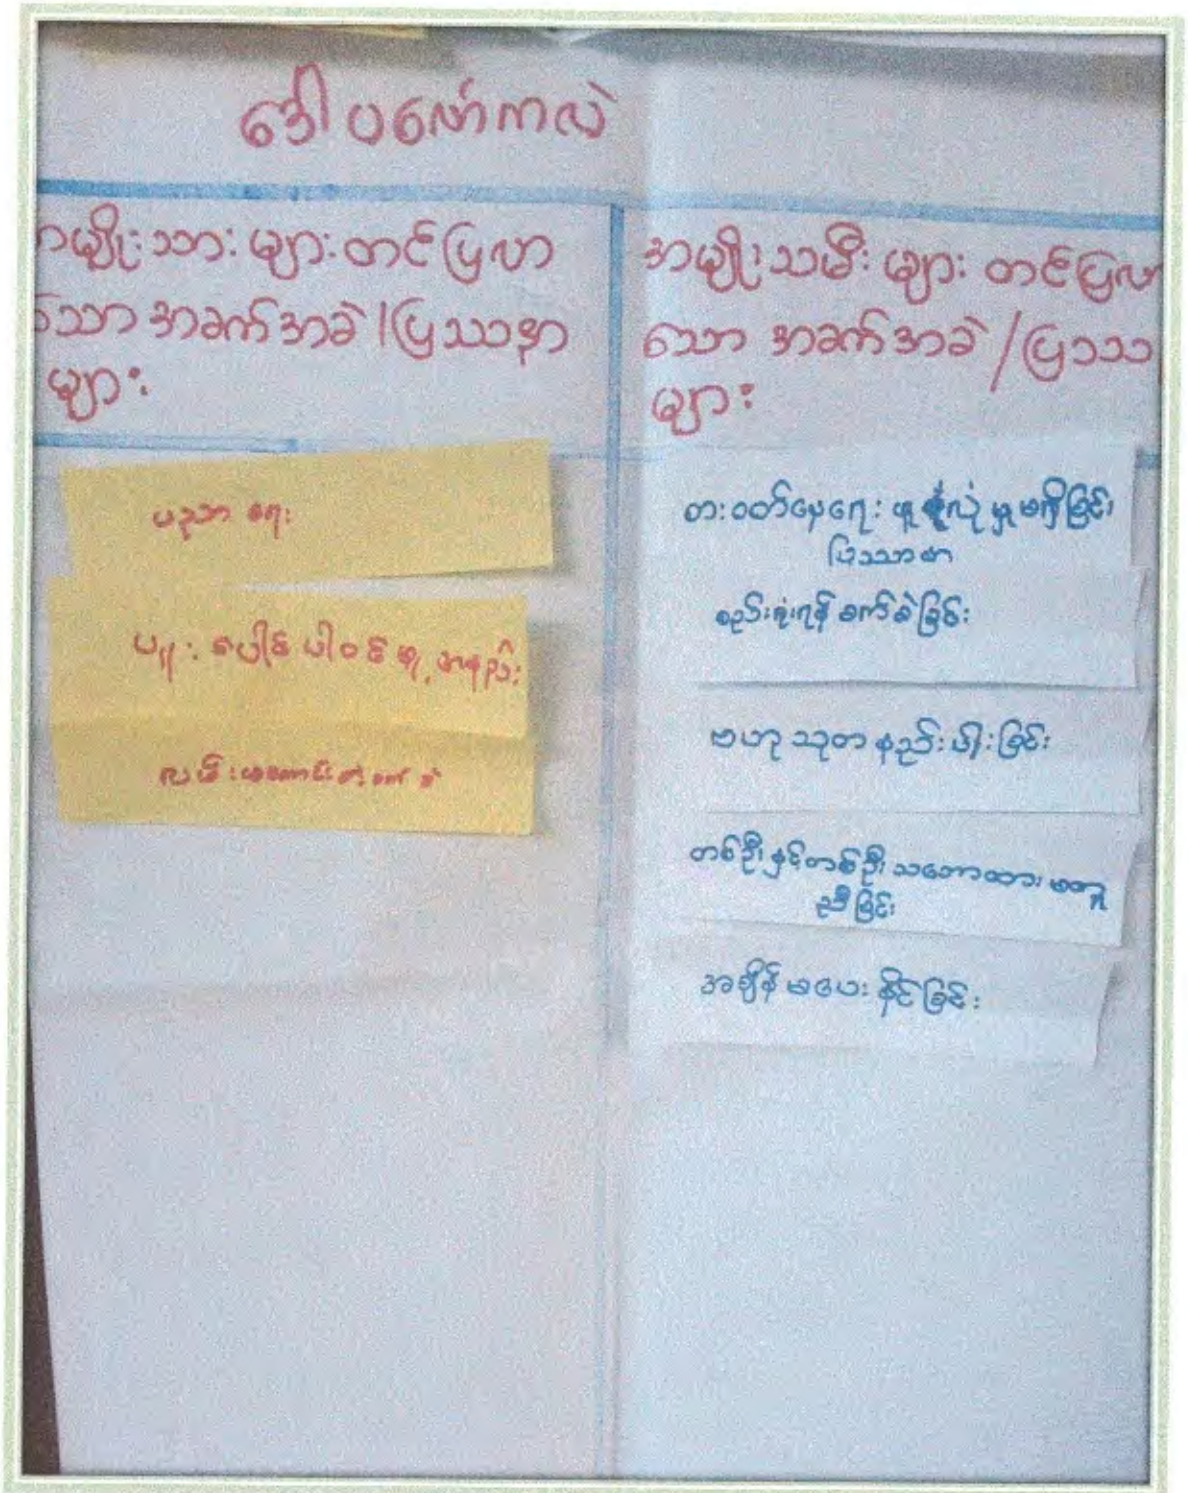 ဒေါပဏော်ကလဲ
ာမျိုးသားများတင်ပြလာ
သော အခက်အခဲ/ပြဿနာ
များ
ပညာရေး
ပူးပေါင်းပါဝင်မှု အနည်း
လမ်းမကောင်း
အမျိုးသမီးများ တင်ပြလာ
သော အခက်အခဲ /ပြသသ
များ
စားဝတ်နေရေး ဖူလုံမှုမရှိခြင်း
ပြဿနာ
စည်းရုံးရန် ခက်ခဲခြင်း
ဗဟုသုတ နည်းပါးခြင်း
တစ်ဦးနှင့်တစ်ဦး သဘောထား မတူ
ညီခြင်း
အချိန်မပေးနိုင်ခြင်း